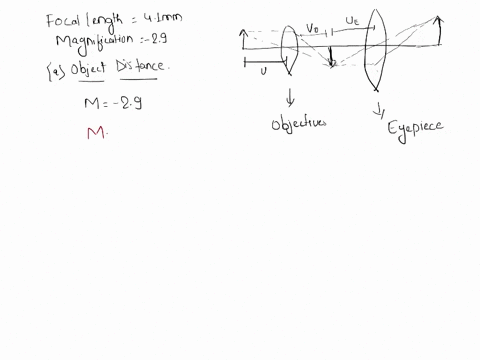 Focal length = 4.1mm
Magnification = -2.9
(a) Object Distance.
M = -2.9
M
u
Vo
Ue
Objectives
Eyepiece